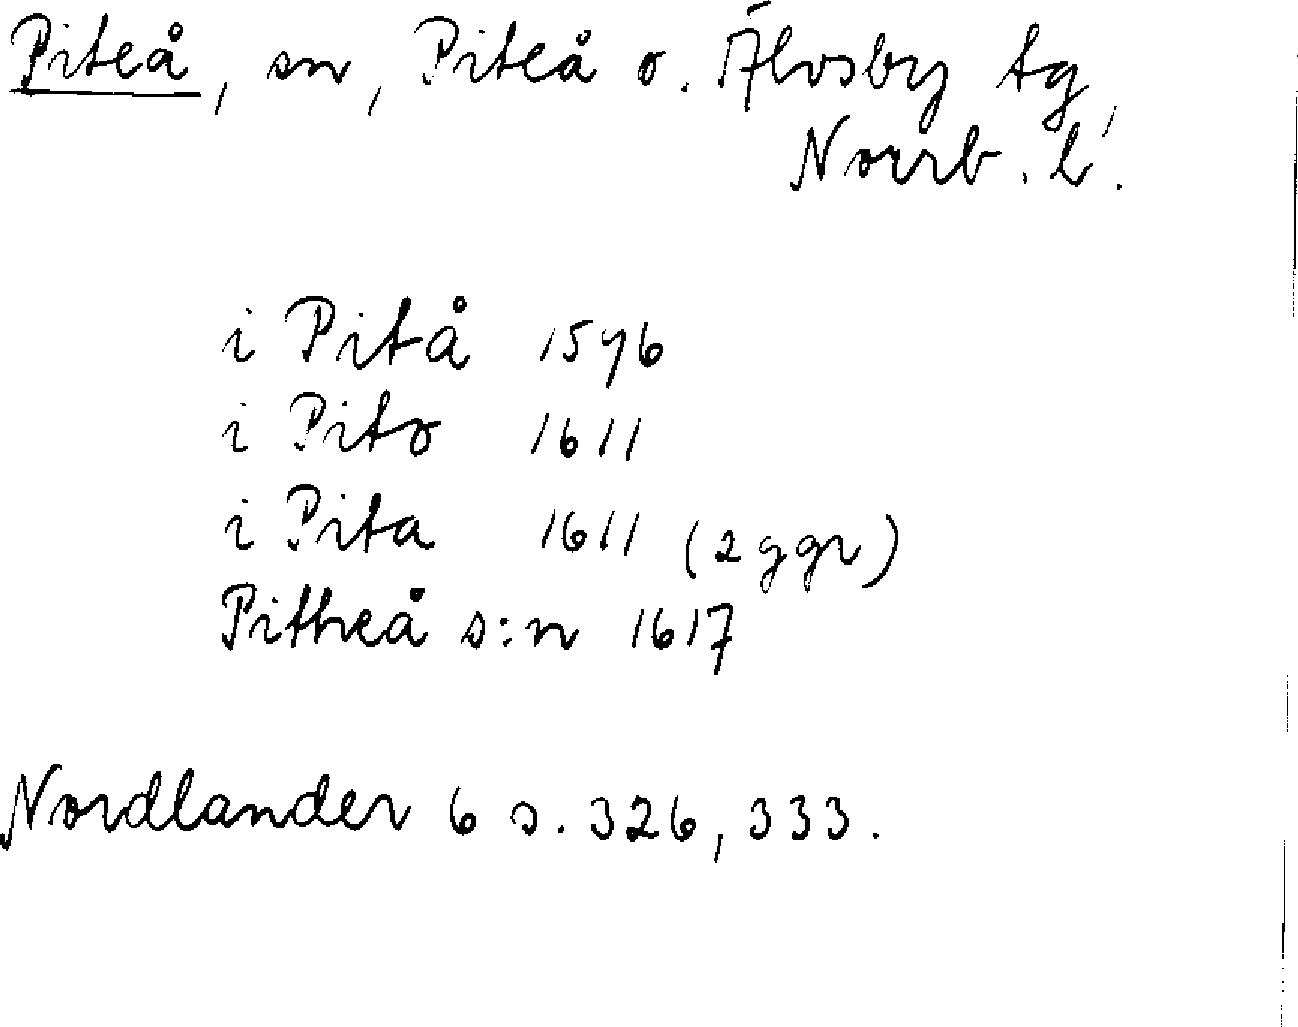 Piteå, sn, Piteå o. Älvsby tg,
Norrb. l.
i Pitå 1576
i Pito 1611
i Pita 1611 (2 ggr)
Pitheå s:n 1617
Nordlander 6 s. 326, 333.